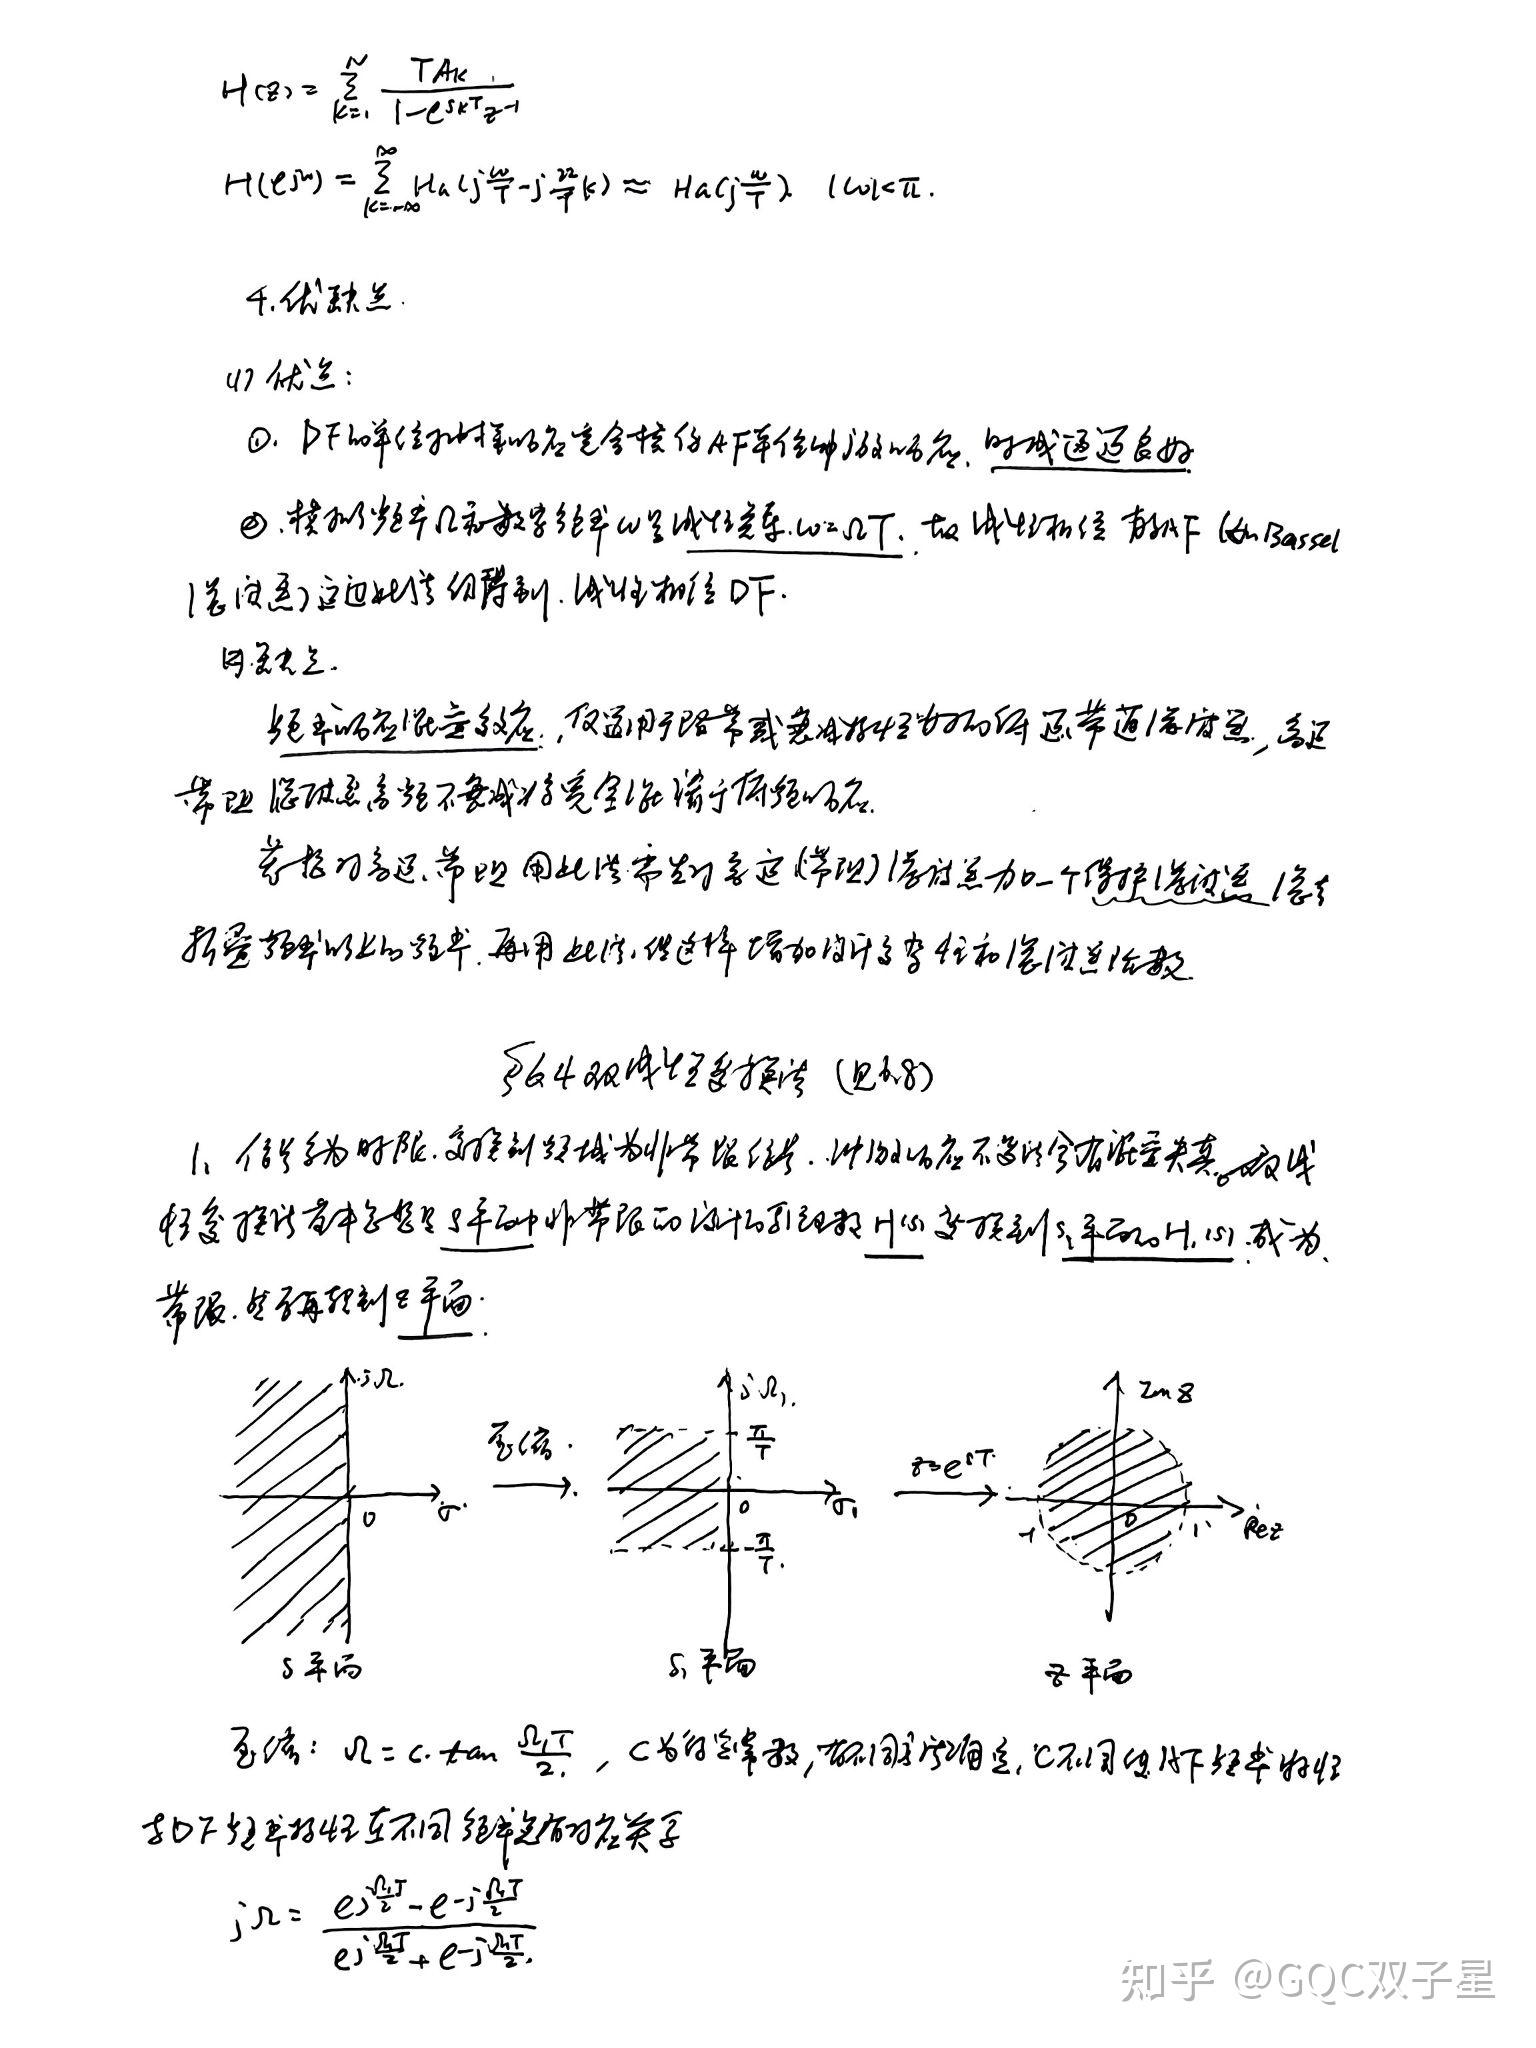 H(z) = Σ_{k=1}^{N} TA_k / (1-e^{s_kT}z^{-1})
H(e^{jω}) = Σ_{k=-∞}^{∞} Ha(jω/T - j2π/T k) ≈ Ha(jω/T). |ω|<π.
4.优缺点.
(1) 优点:
①. DF的单位抽样响应完全模仿AF单位冲激响应, 时域逼近良好
②.模拟频率Ω和数字频率ω呈线性关系.ω=ΩT. 故线性相位 AF (如Bassel
滤波器)通过此法仍得到.线性相位DF.
缺点.
频率响应混叠效应., 仅适用于限带或衰减特性好的低通、带通滤波器, 高通
带阻滤波器高频不衰减将完全混淆于低频响应.
若想对高通、带阻用此法需先对高通(带阻)滤波器加一个保护滤波器 滤去
折叠频率以上的频率.再用此法,但这样增加设计复杂性和滤波器阶数
§6.4双线性变换法 (见5.8)
1、信号为时限.变换到频域为非带限信号.冲激响应不变法会有混叠失真。双线
性变换法基本思想是S平面中非带限的设计的系统函数H(s)变换到S₁平面的H₁(s).成为
带限.然后再转到z平面.
jΩ.
σ.
0
S平面
压缩.
jΩ₁.
π/T
σ₁
0
-π/T.
S₁平面
z=e^{sT}
Im z
-1
0
1
Re z
z平面
压缩: Ω = c·tan Ω₁T/2. , C为待定常数,有不同方法确定,C不同使AF频率特性
与DF频率特性在不同频率点有对应关系
jΩ = (e^{jΩ₁T/2} - e^{-jΩ₁T/2}) / (e^{jΩ₁T/2} + e^{-jΩ₁T/2}).
知乎 @GQC双子星